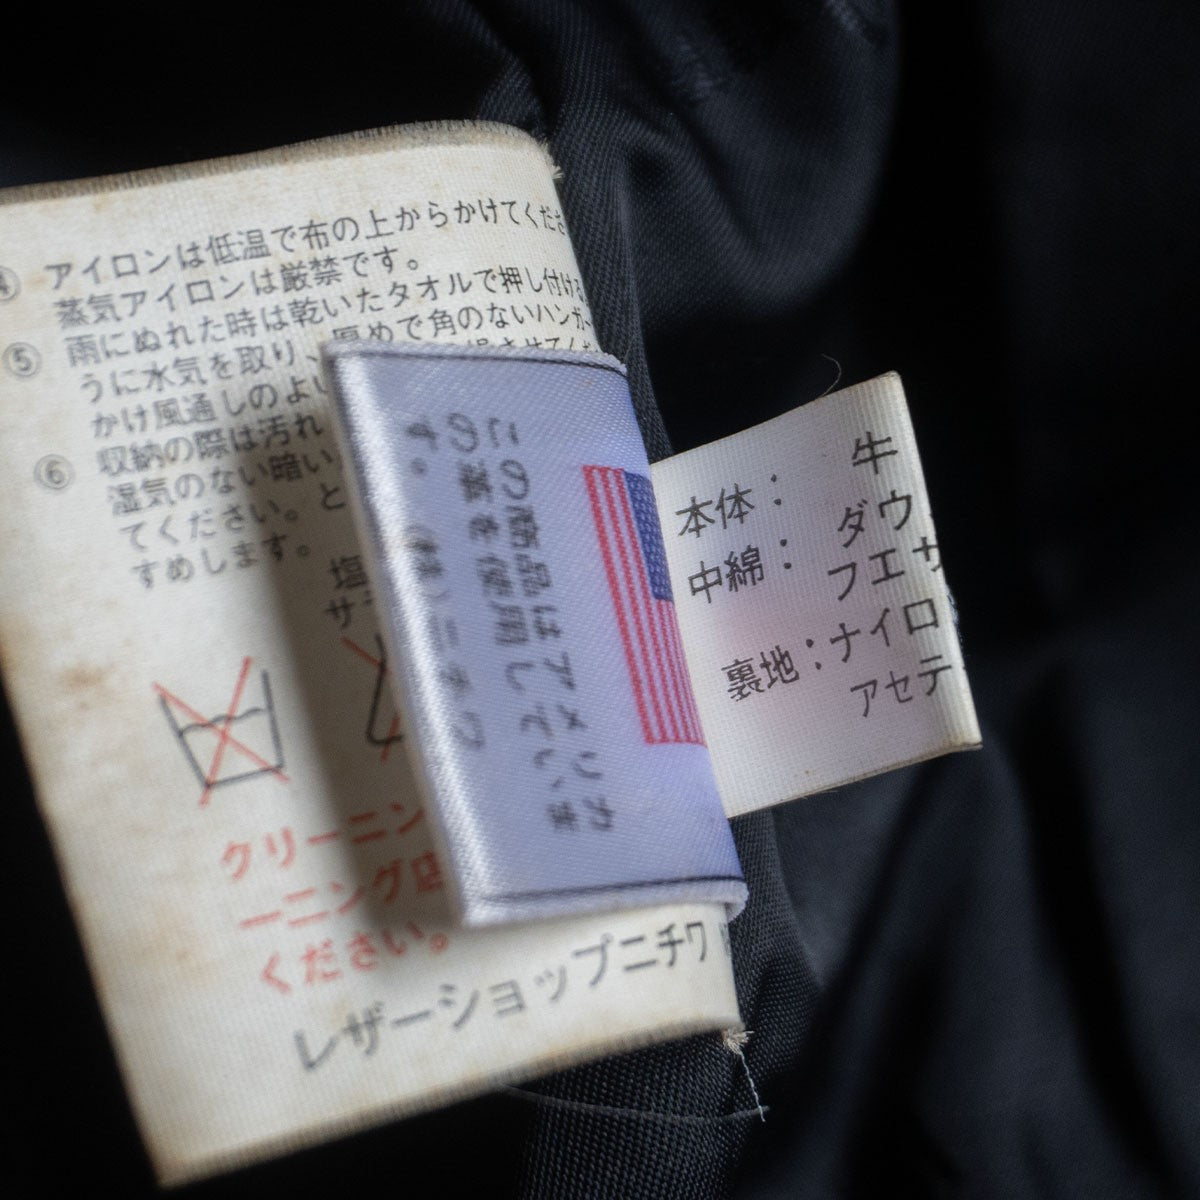 ④ アイロンは低温で布の上からかけてくださ
蒸気アイロンは厳禁です。
⑤ 雨にぬれた時は乾いたタオルで押し付ける
うに水気を取り、厚めで角のないハンガー
かけ風通しのよい
⑥ 収納の際は汚れ
湿気のない暗い
てください。と
すめします。
塩
サ
クリーニン
ーニング店
ください。
レザーショップニチワ
この商品はアメリカ
の革を使用していま
す。 (株)ニチワ
本体： 牛
中綿： ダウ
フエサ
裏地：ナイロ
アセテ